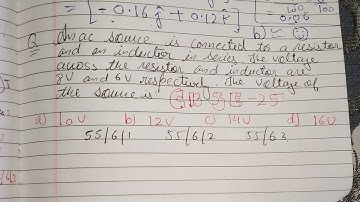 = [-0.16ĵ + 0.12k̂]
100 100
= 0.06
Q An ac source is connected to a resistor
and an inductor in series. The voltage
across the resistor and inductor are
8V and 6V respectively. The voltage of
the source is:
a) 10V b) 12V c) 14V d) 16V
55/6/1 55/6/2 55/6 3